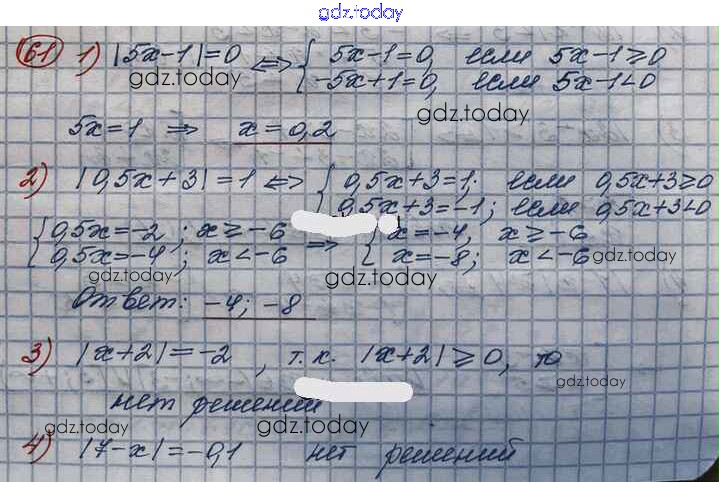 gdz.today
61 1) |5x-1|=0 ⇔ { 5x-1=0, если 5x-1≥0
-5x+1=0, если 5x-1<0
gdz.today
gdz.today
5x=1 ⇒ x=0,2
2) |0,5x+3|=1 ⇔ { 0,5x+3=1; если 0,5x+3≥0
0,5x+3=-1; если 0,5x+3<0
{ 0,5x=-2; x≥-6 ⇒ { x=-4, x≥-6
0,5x=-4; x<-6 x=-8; x<-6
gdz.today gdz.today
gdz.today
Ответ: -4; -8
3) |x+2|=-2, т.к. |x+2|≥0, то
gdz.today
нет решений
gdz.today gdz.today
4) |7-x|=-0,1 нет решений